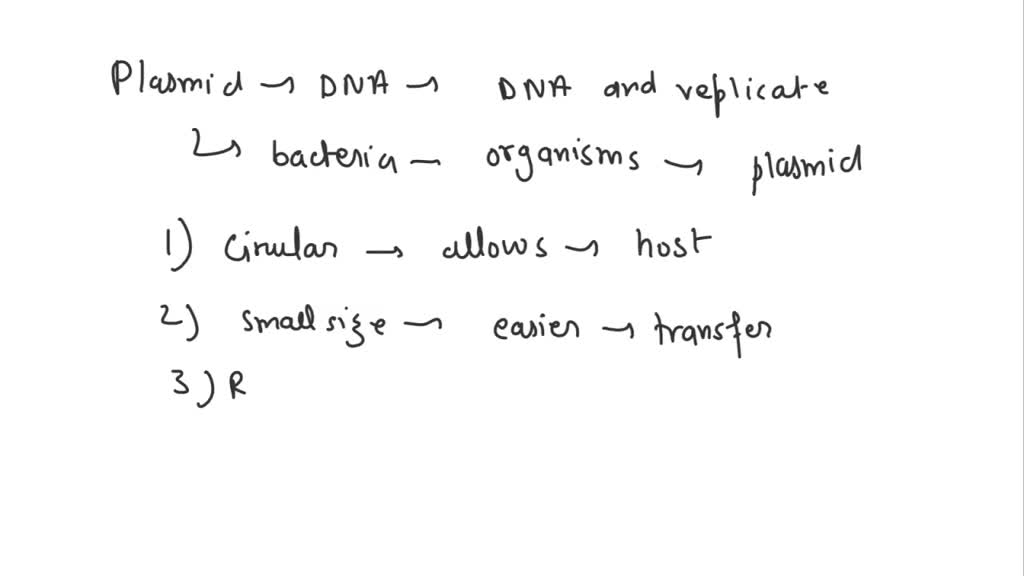 Plasmid → DNA → DNA and replicate
↳ bacteria – organisms → plasmid
1) Cirular → allows → host
2) small size – easier → transfer
3) R